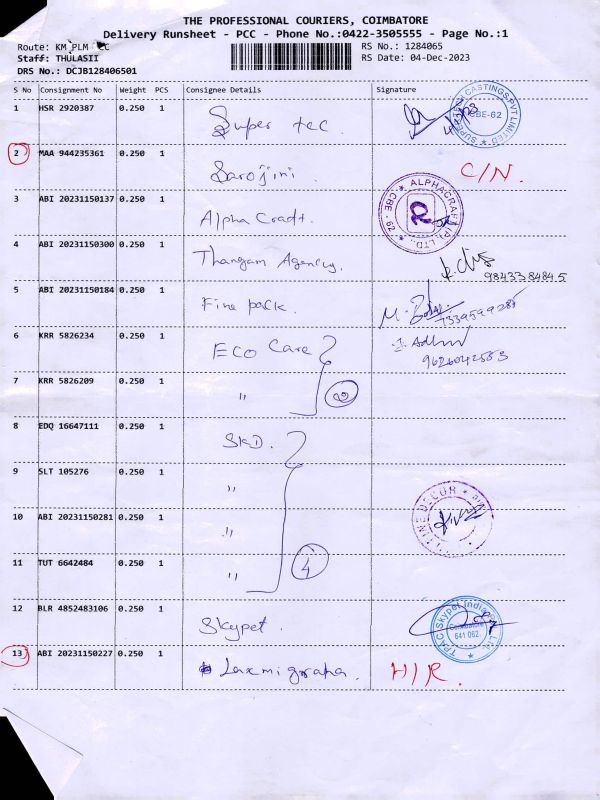 THE PROFESSIONAL COURIERS, COIMBATORE
Delivery Runsheet - PCC - Phone No.:0422-3505555 - Page No.:1
Route: KM PLM CC
RS No.: 1284065
Staff: THULASII
RS Date: 04-Dec-2023
DRS No.: DCJB128406501
S No Consignment No Weight PCS Consignee Details Signature
1 HSR 2920387 0.250 1 Super tec. SUPER TECH CASTINGS PVT LIMITED ★ CBE-62
2 MAA 944235361 0.250 1 Sarojini. C/N.
3 ABI 20231150137 0.250 1 Alpha Craft. ALPHACRAFT (P) LTD., ★ CBE - 29 ★
4 ABI 20231150300 0.250 1 Thangam Agency. 9843384845
5 ABI 20231150184 0.250 1 Fine pack. M.
6 KRR 5826234 0.250 1 ECO Care 9626042553
7 KRR 5826209 0.250 1 " 2
8 EDQ 16647111 0.250 1 SKD.
9 SLT 105276 0.250 1 "
10 ABI 20231150281 0.250 1 " DECOR ★
11 TUT 6642484 0.250 1 " 4
12 BLR 4852483106 0.250 1 Skypet. TPAC Skypet India Ltd. Coimbatore 641 062. ★
13 ABI 20231150227 0.250 1 Laxmi grapha. H/R.